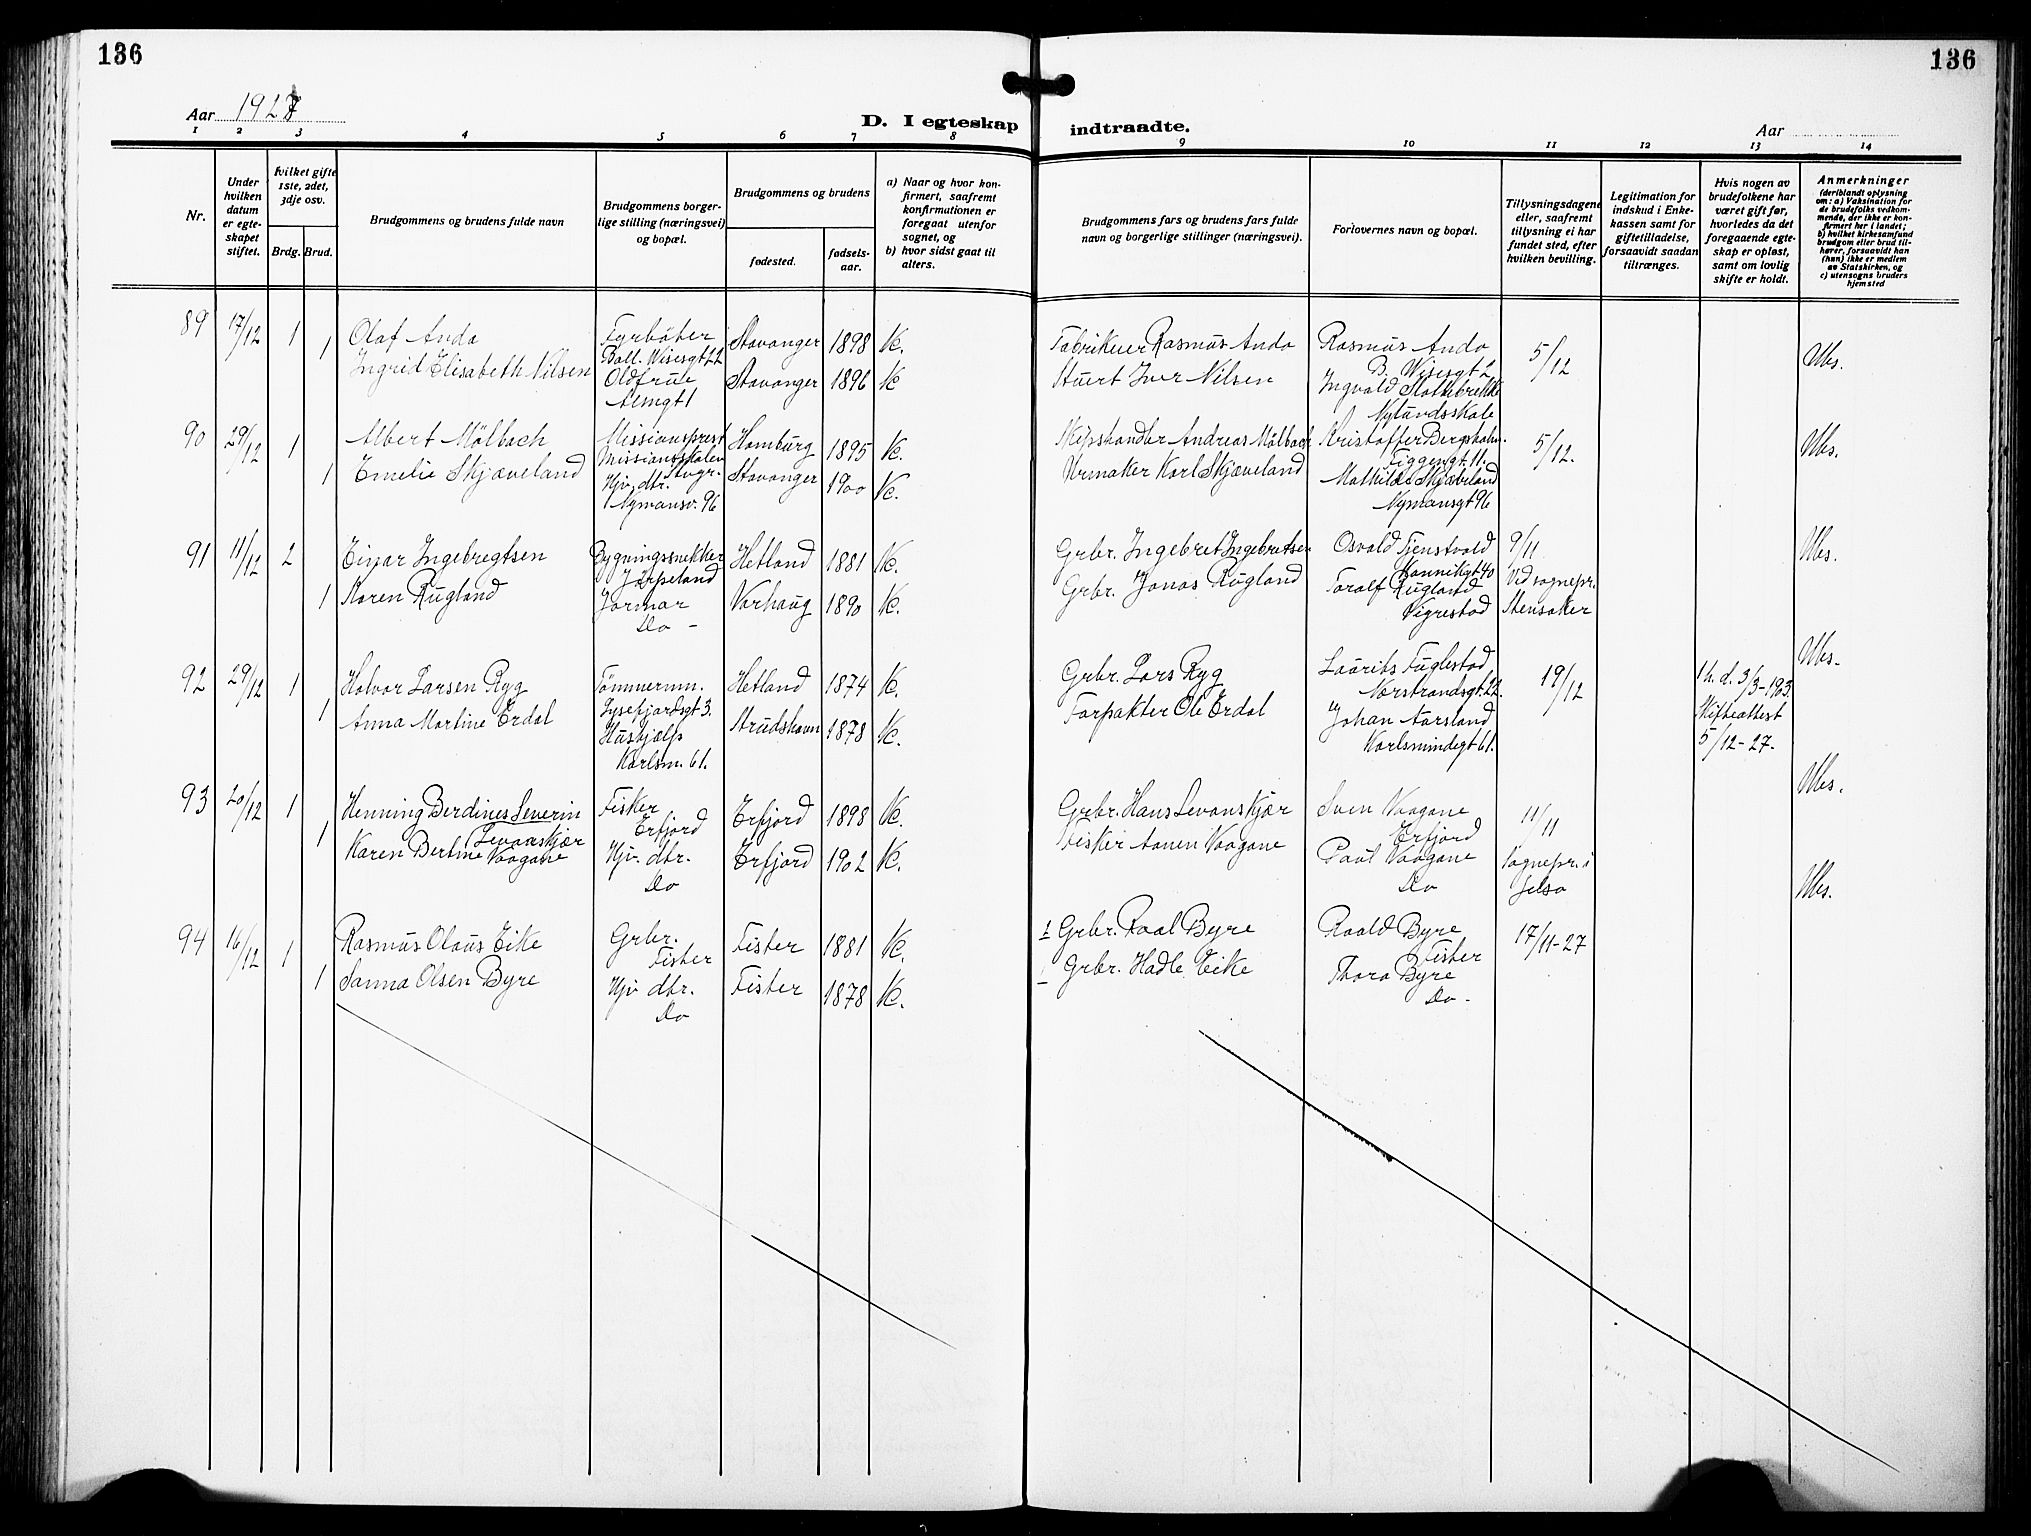 136
136
Aar 1927
D. I egteskap indtraadte.
Aar
1 2 3 4 5 6 7 8 9 10 11 12 13 14
Nr.
Under hvilken datum er egteskapet stiftet.
hvilket gifte 1ste, 2det, 3dje osv.
Brdg. Brud.
Brudgommens og brudens fulde navn
Brudgommens borgerlige stilling (næringsvei) og bopæl.
Brudgommens og brudens
fødested.
fødselsaar.
a) Naar og hvor konfirmert, saafremt konfirmutionen er foregaat utenfor sognet, og
b) hvor sidst gaat til alters.
Brudgommens fars og brudens fars fulde navn og borgerlige stillinger (næringsvei).
Forlovernes navn og bopæl.
Tillysningsdagene eller, saafremt tillysning ei har fundet sted, efter hvilken bevilling.
Legitimation for indskud i Enkekassen samt for giftetilladelse, forsaavidt saadan tiltrænges.
Hvis nogen av brudefolkene har været gift før, hvorledes da det foregaaende egteskap er opløst, samt om lovlig skifte er holdt.
Anmerkninger
(deriblandt oplysning om: a) Vaksination for de brudefolks vedkommende, der ikke er konfirmert her i landet; b) hvilket kirkesamfund brudgom eller brud tilhører, forsaavidt han (hun) ikke er medlem av Statskirken, og c) utensogns bruders hjemsted
89 17/12 1 Olaf Anda Fyrbøter Ball. Wisesgt 22 Stavanger 1898 K. Fabrikeier Rasmus Anda Rasmus Anda B. Wisesgt 2 5/12 Ubs.
1 Ingrid Elisabeth Nilsen Oldfrue Almgt 1 Stavanger 1896 K Stuert Iver Nilsen Ingvald Slottebrekke Nylundsskole
90 29/12 1 Albert Mölbach Missionsprest Missionsskolen Stvgr. Hamburg 1895 K. Skipshandler Andreas Mölbach Kristoffer Bergsholm Figgengt. 11. 5/12. Ubs.
1 Emelie Skjæveland Hjv. dtr. Nymansv. 96 Stavanger 1900 K. Urmaker Karl Skjæveland Mathilde Skjæveland Nymansgt 96
91 11/12 2 Einar Ingebregtsen Bygningssnekker Jørpeland Hetland 1881 K. Grbr. Ingebret Ingebretsen Osvald Tjenstvold Kannikgt 40 9/11 Ubs.
1 Karen Rugland Jormor Do - Varhaug 1890 K. Grbr. Jonas Rugland Toralf Rugland Vigrestad Ved sognepr. Stensaker
92 29/12 1 Halvor Larsen Ryg Tömmerm. Lysefjordsgt 3. Hetland 1874 K. Grbr. Lars Ryg Laurits Fuglestad Norstrandsgt. 22. 19/12 1h. d. 3/3-1903. Ubs.
1 Anna Martine Erdal Hushjælp Karlsm. 61. Strudshavn 1878 K. Forpakter Ole Erdal Johan Aarsland Karlsmindegt 61. Skifteattest 5/12-27.
93 20/12 1 Henning Berdines Severin Levanskjær Fisker Erfjord Erfjord 1898 K. Grbr. Hans Levanskjær Sven Vaagane Erfjord 11/11 Ubs.
1 Karen Bertine Vaagane Hjv. dtr. Do Erfjord 1902 K. Fisker Aanen Vaagane Paul Vaagane Do Sognepr. i Jelsa
94 16/12 1 Rasmus Olaus Eike Grbr. Fister Fister 1881 K. Grbr. Roal Byre Roald Byre Fister 17/11-27 Ubs.
1 Sanna Olsen Byre Hjv dtr. Do Fister 1878 K. Grbr. Hadle Eike Thora Byre Do -